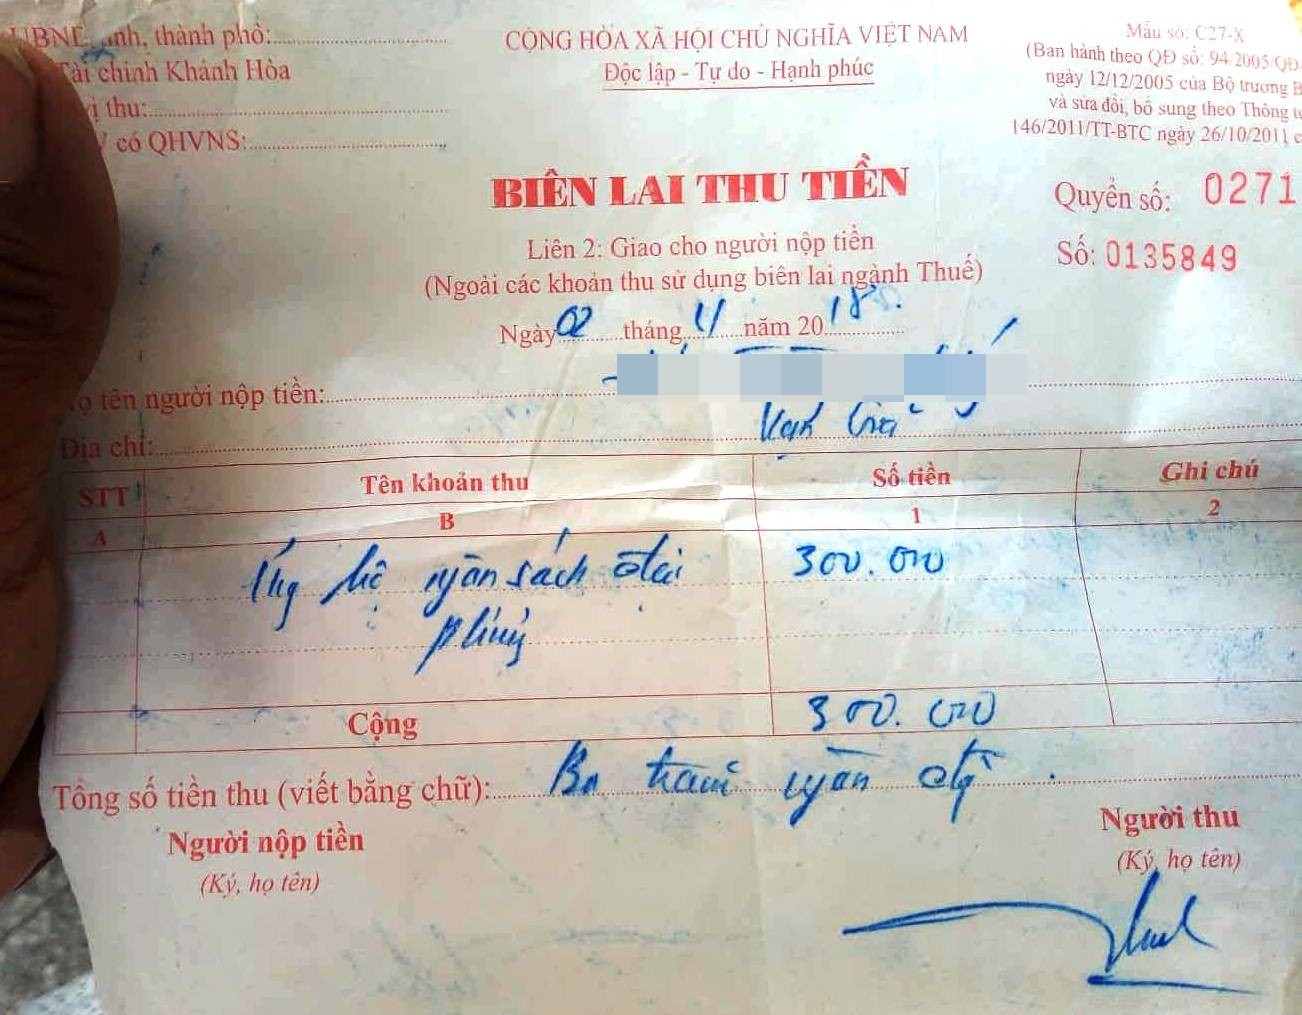 UBND tỉnh, thành phố:
Tài chính Khánh Hòa
vị thu:
V có QHVNS:
CỘNG HÒA XÃ HỘI CHỦ NGHĨA VIỆT NAM
Độc lập - Tự do - Hạnh phúc
Mẫu số: C27-X
(Ban hành theo QĐ số: 94/2005/QĐ-
ngày 12/12/2005 của Bộ trưởng B
và sửa đổi, bổ sung theo Thông t
146/2011/TT-BTC ngày 26/10/2011 c
BIÊN LAI THU TIỀN
Quyển số: 0271
Liên 2: Giao cho người nộp tiền
Số: 0135849
(Ngoài các khoản thu sử dụng biên lai ngành Thuế)
Ngày 02 tháng 4 năm 2018
ọ tên người nộp tiền:
Địa chỉ: Vạn
STT Tên khoản thu Số tiền Ghi chú
A B 1 2
Ủng hộ ngân sách địa 300.000
phương
Cộng 300.000
Tổng số tiền thu (viết bằng chữ): Ba trăm ngàn đồng
Người nộp tiền Người thu
(Ký, họ tên) (Ký, họ tên)